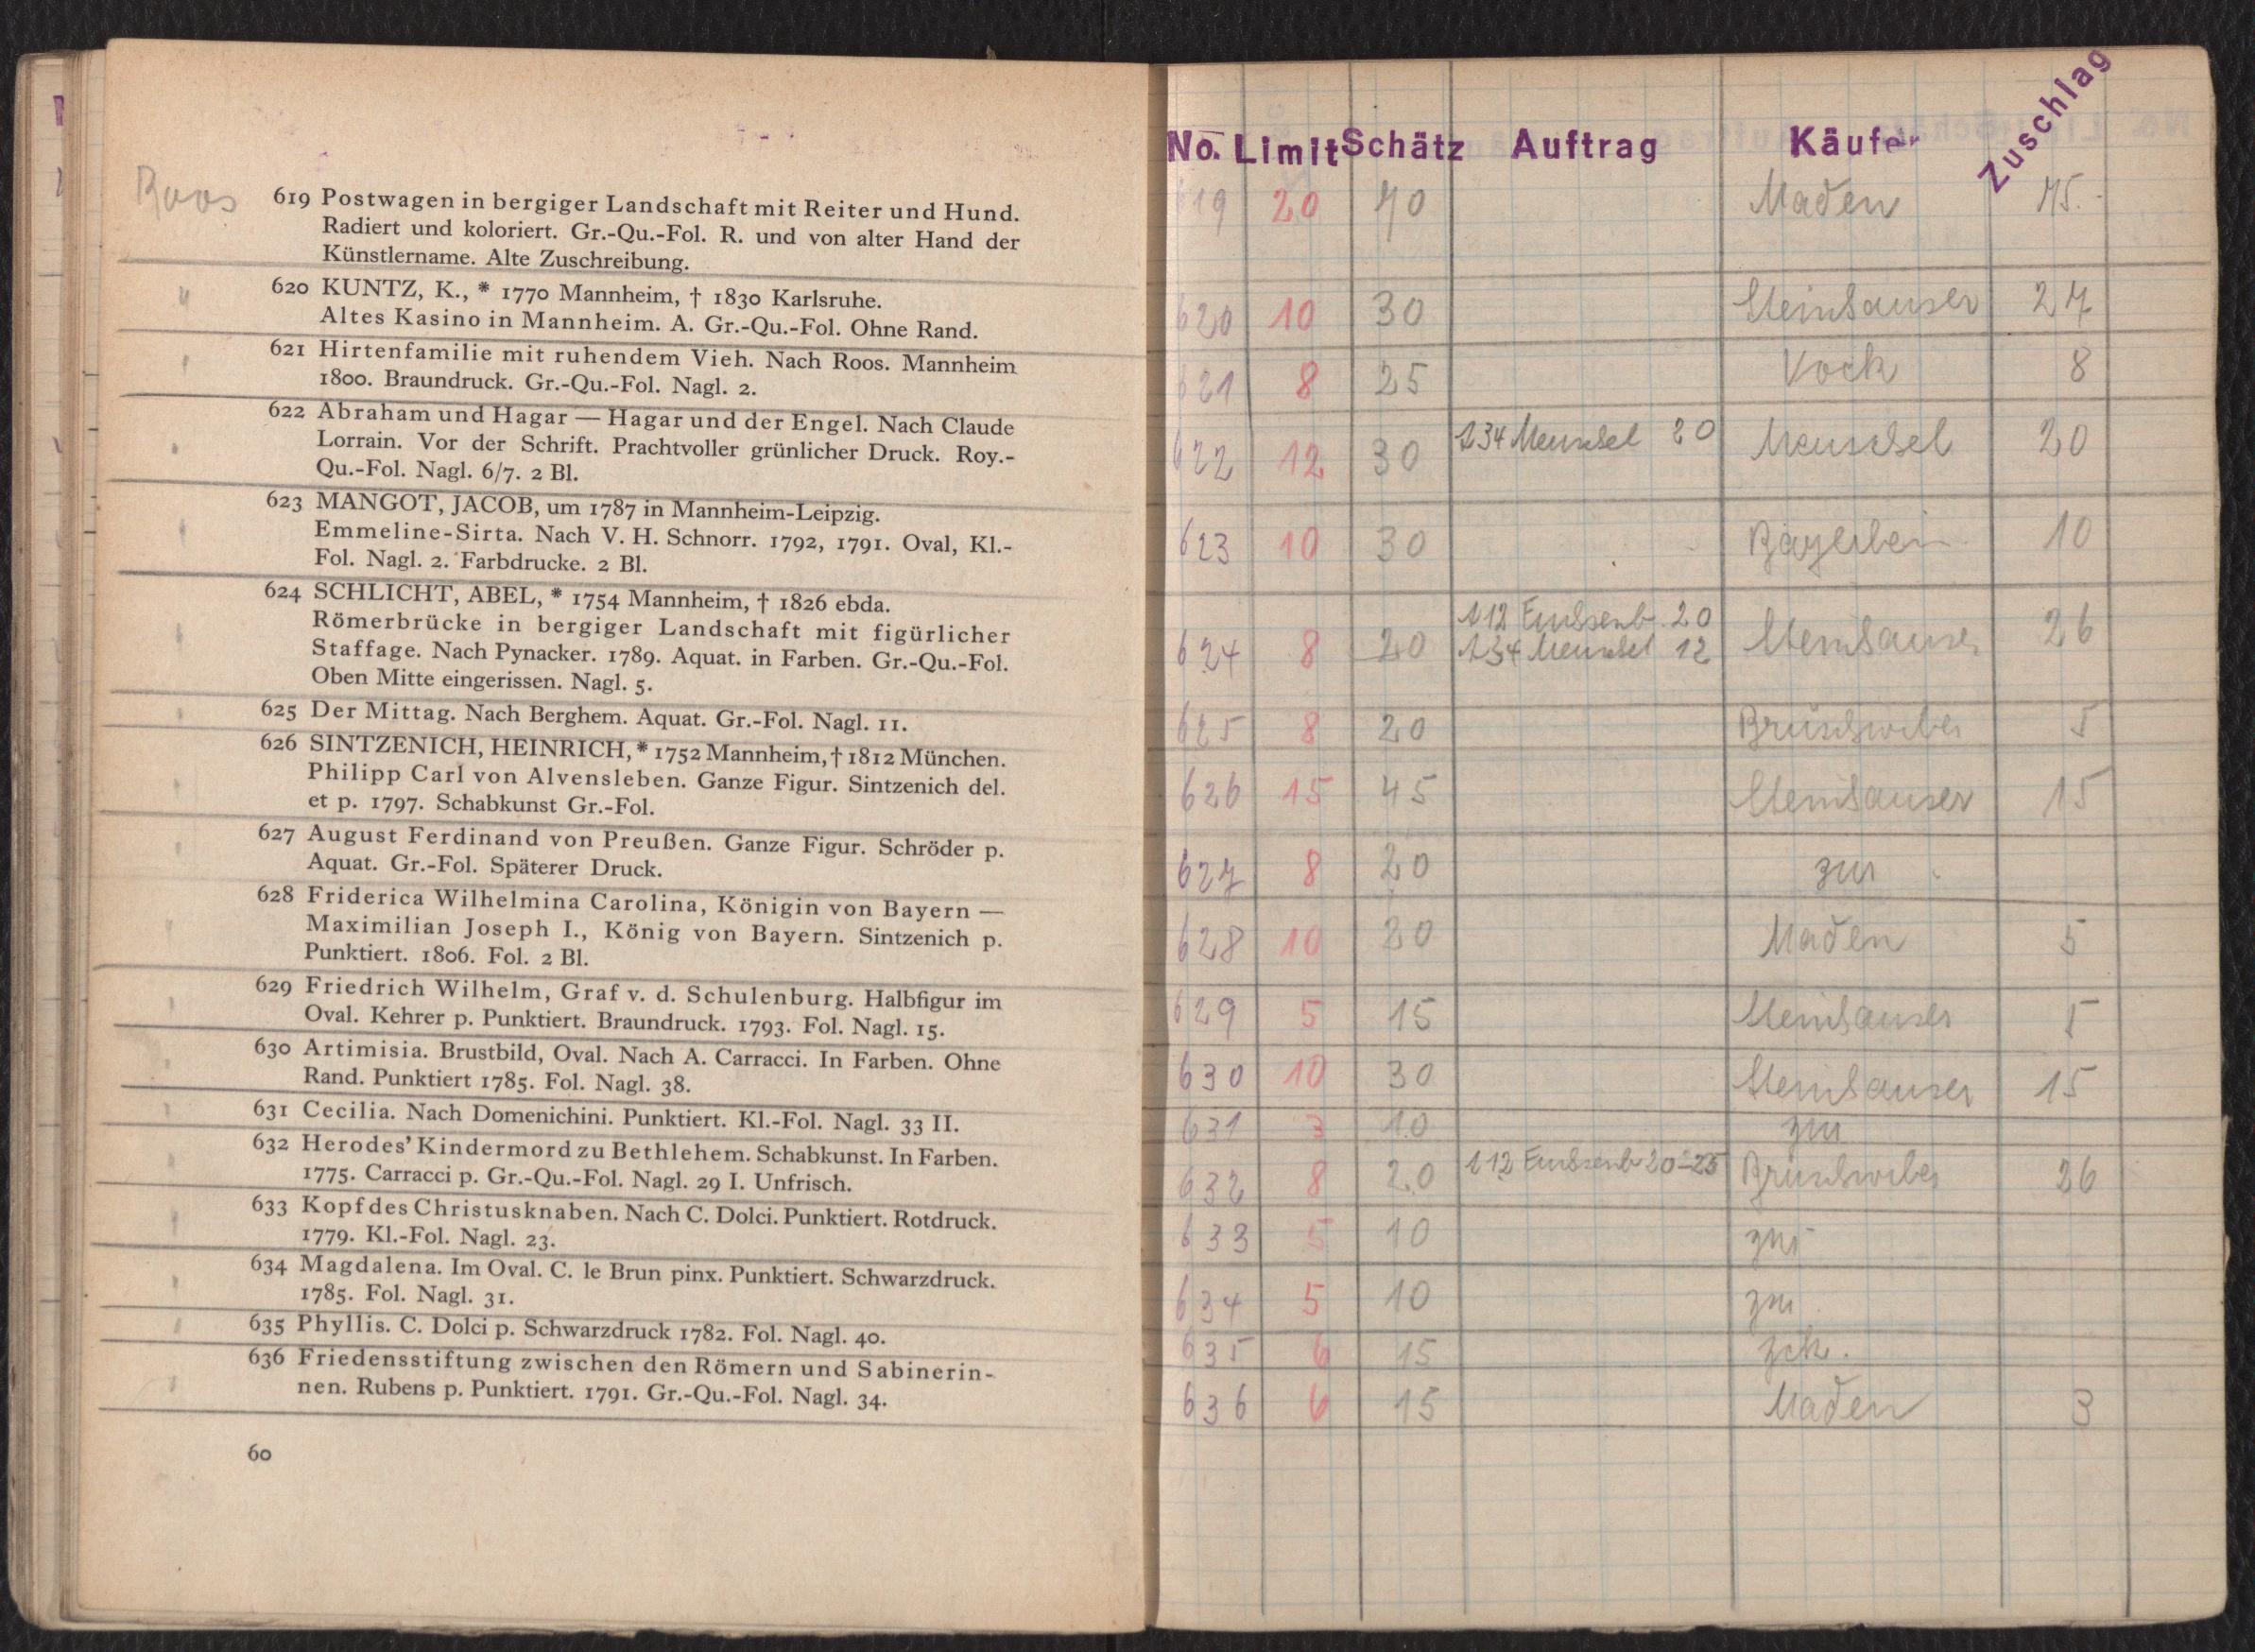 Roos
619 Postwagen in bergiger Landschaft mit Reiter und Hund.
Radiert und koloriert. Gr.-Qu.-Fol. R. und von alter Hand der
Künstlername. Alte Zuschreibung.
620 KUNTZ, K., * 1770 Mannheim, † 1830 Karlsruhe.
Altes Kasino in Mannheim. A. Gr.-Qu.-Fol. Ohne Rand.
621 Hirtenfamilie mit ruhendem Vieh. Nach Roos. Mannheim
1800. Braundruck. Gr.-Qu.-Fol. Nagl. 2.
622 Abraham und Hagar — Hagar und der Engel. Nach Claude
Lorrain. Vor der Schrift. Prachtvoller grünlicher Druck. Roy.-
Qu.-Fol. Nagl. 6/7. 2 Bl.
623 MANGOT, JACOB, um 1787 in Mannheim-Leipzig.
Emmeline-Sirta. Nach V. H. Schnorr. 1792, 1791. Oval, Kl.-
Fol. Nagl. 2. Farbdrucke. 2 Bl.
624 SCHLICHT, ABEL, * 1754 Mannheim, † 1826 ebda.
Römerbrücke in bergiger Landschaft mit figürlicher
Staffage. Nach Pynacker. 1789. Aquat. in Farben. Gr.-Qu.-Fol.
Oben Mitte eingerissen. Nagl. 5.
625 Der Mittag. Nach Berghem. Aquat. Gr.-Fol. Nagl. 11.
626 SINTZENICH, HEINRICH, * 1752 Mannheim, † 1812 München.
Philipp Carl von Alvensleben. Ganze Figur. Sintzenich del.
et p. 1797. Schabkunst Gr.-Fol.
627 August Ferdinand von Preußen. Ganze Figur. Schröder p.
Aquat. Gr.-Fol. Späterer Druck.
628 Friderica Wilhelmina Carolina, Königin von Bayern —
Maximilian Joseph I., König von Bayern. Sintzenich p.
Punktiert. 1806. Fol. 2 Bl.
629 Friedrich Wilhelm, Graf v. d. Schulenburg. Halbfigur im
Oval. Kehrer p. Punktiert. Braundruck. 1793. Fol. Nagl. 15.
630 Artimisia. Brustbild, Oval. Nach A. Carracci. In Farben. Ohne
Rand. Punktiert 1785. Fol. Nagl. 38.
631 Cecilia. Nach Domenichini. Punktiert. Kl.-Fol. Nagl. 33 II.
632 Herodes' Kindermord zu Bethlehem. Schabkunst. In Farben.
1775. Carracci p. Gr.-Qu.-Fol. Nagl. 29 I. Unfrisch.
633 Kopf des Christusknaben. Nach C. Dolci. Punktiert. Rotdruck.
1779. Kl.-Fol. Nagl. 23.
634 Magdalena. Im Oval. C. le Brun pinx. Punktiert. Schwarzdruck.
1785. Fol. Nagl. 31.
635 Phyllis. C. Dolci p. Schwarzdruck 1782. Fol. Nagl. 40.
636 Friedensstiftung zwischen den Römern und Sabinerin-
nen. Rubens p. Punktiert. 1791. Gr.-Qu.-Fol. Nagl. 34.
60
No. Limit Schätz Auftrag Käufer Zuschlag
619 20 70 Maden
620 10 30 Steinhauser 27
621 8 25 Vock 8
622 12 30 134 Meuschel 20 Meuschel 20
623 10 30 10
112 20
624 8 20 134 Meuschel 12 Steinhauser 26
625 8 20 5
626 15 45 Steinhauser 15
627 8 20 zur
628 10 20 Maden 5
629 5 15 Steinhauser 5
630 10 30 Steinhauser 15
631 3 10 zur
632 8 20 112 20-25 26
633 5 10 zur
634 5 10 zur
635 6 15
636 6 15 Maden 3